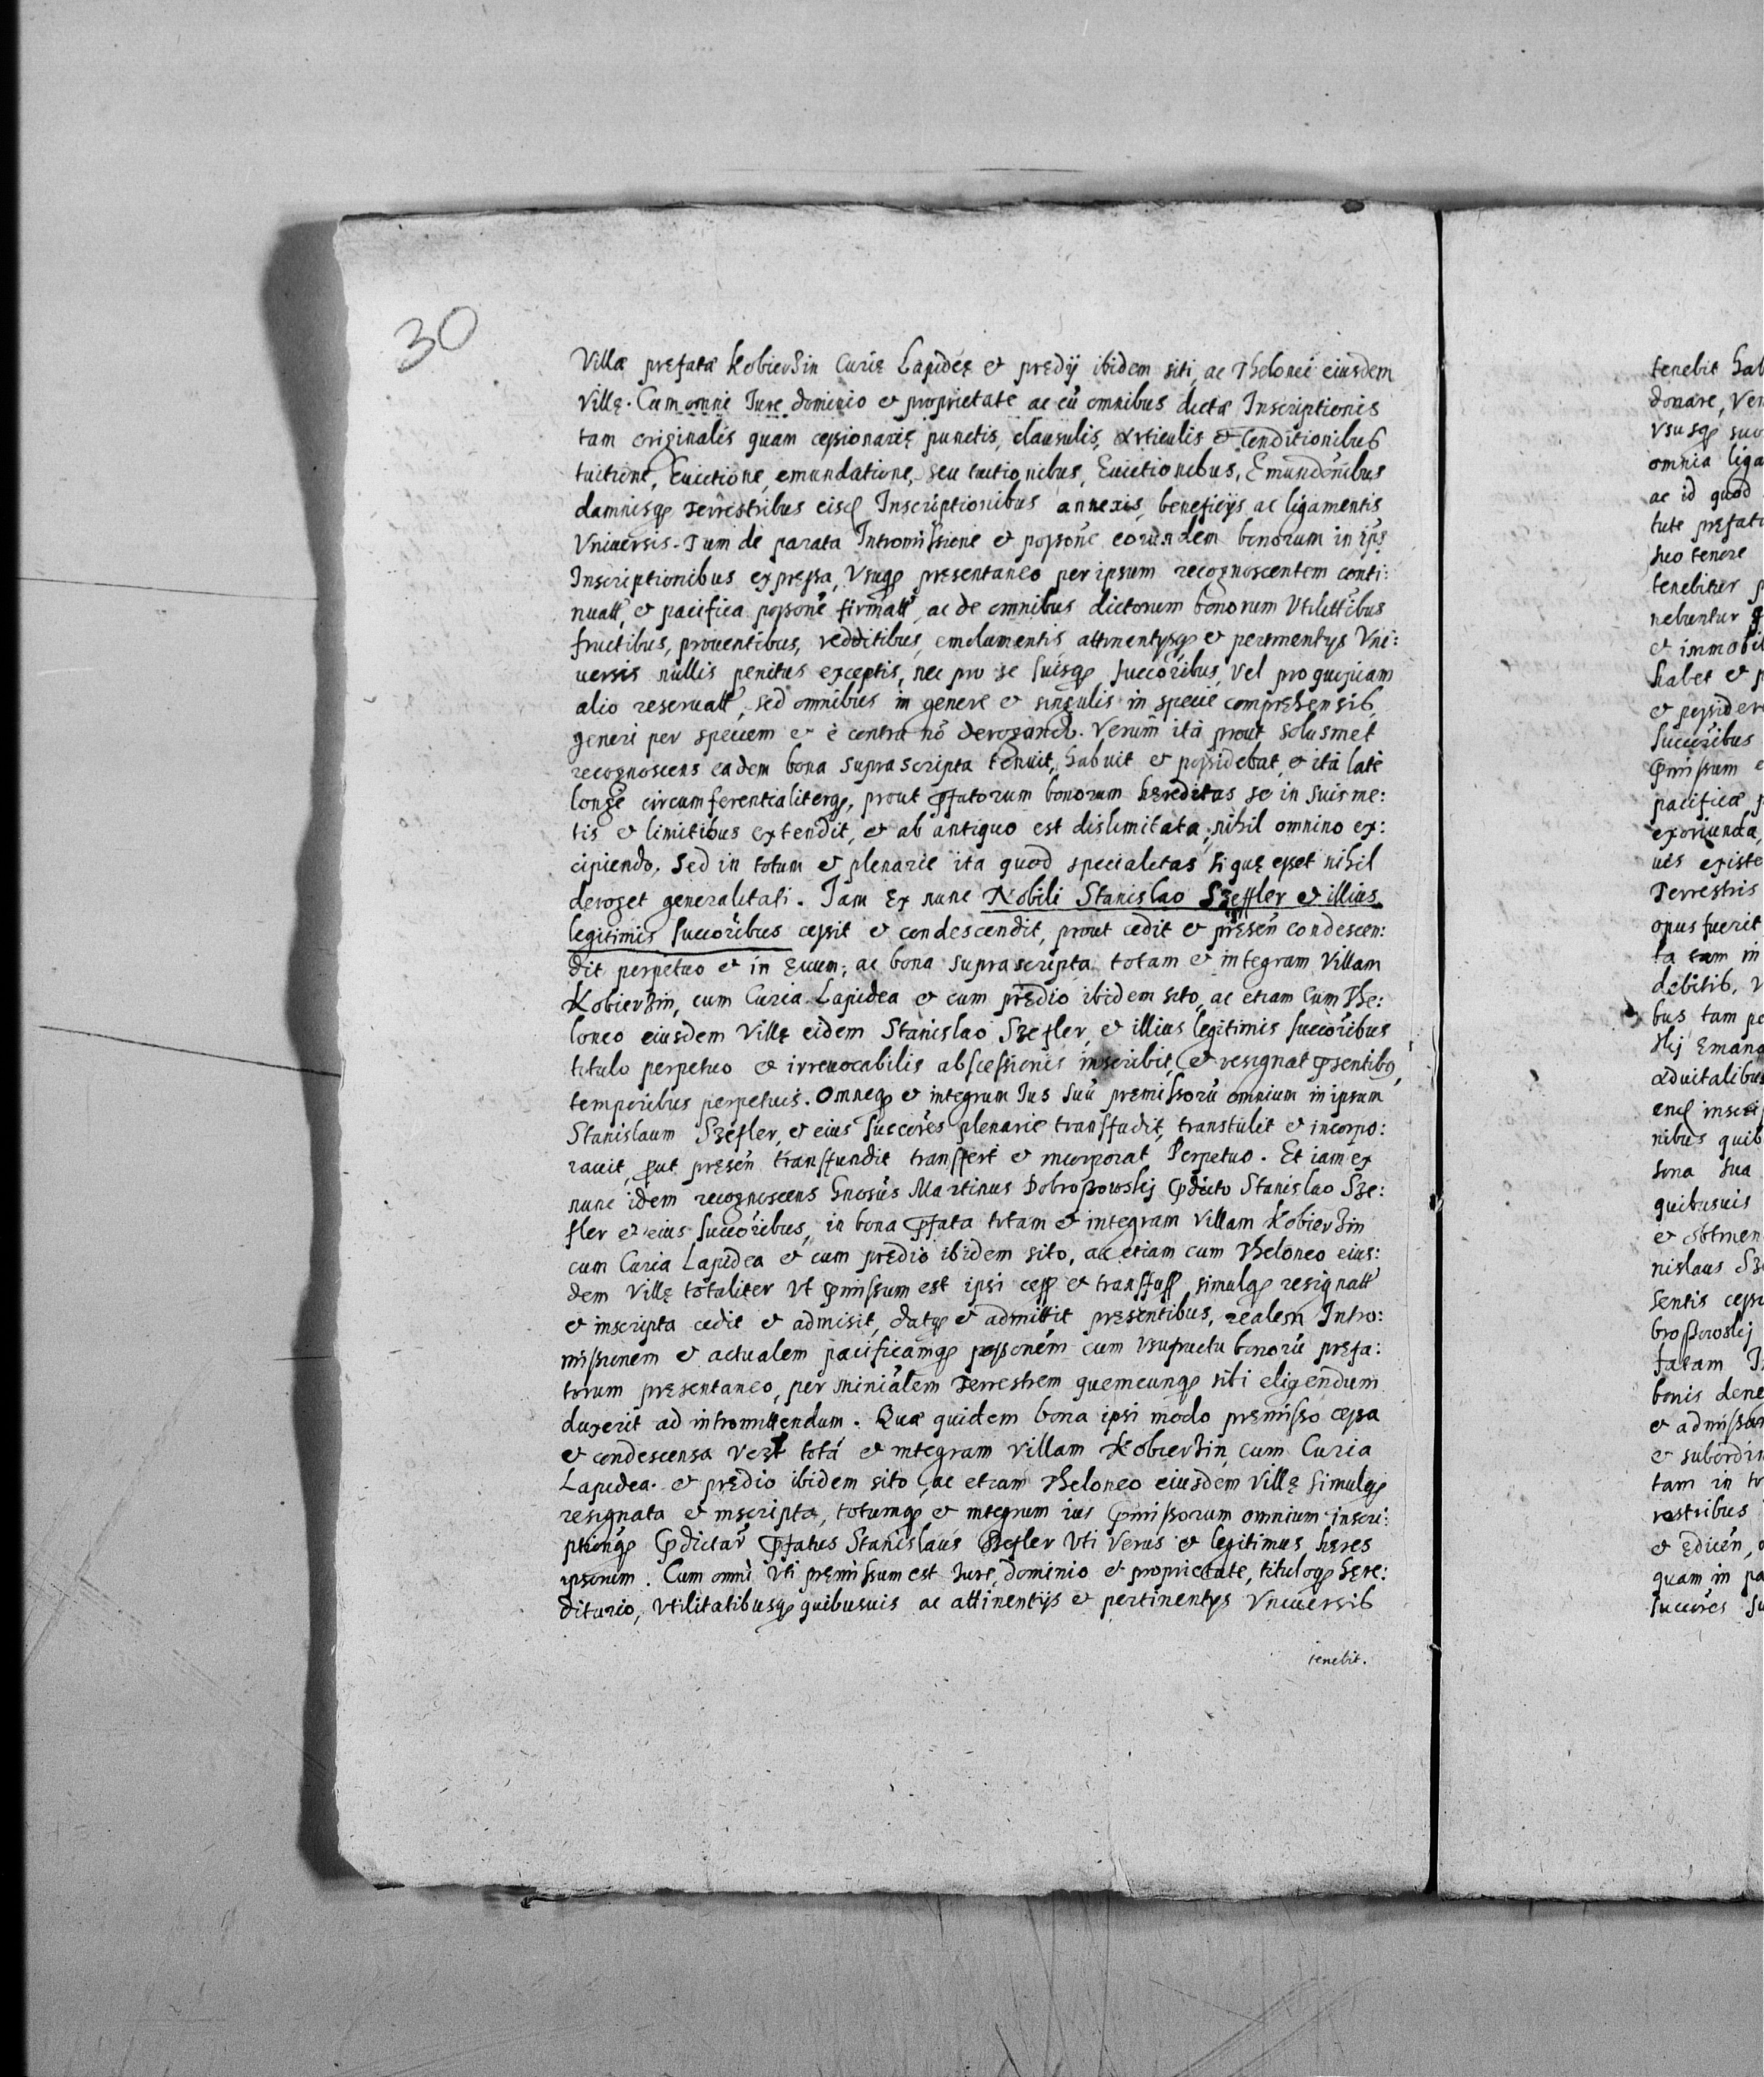 30
Villæ pręfatæ Kobierzin Curię Lapidęę et prędij ibidem siti, ac Thelonei eiusdem
Villę. Cum omni Iure dominio et proprietate ac cũ omnibus dictæ Inscriptionis
tam originalis quam cessionarię punctis, clausulis, Articulis et Conditionibus
tuitione, Euictione, emundatione, seu tuitionibus, Euictionibus, Emundõnibus
damnisq3 Terrestribus eisd Inscriptionibus annexis, beneficijs ac ligamentis
Vniuersis. Tum de parata Intromissione et possõne eorundem bonorum in ips
Inscriptionibus expressa, Vsuq3 pręsentaneo per ipsum recognoscentem conti:
nuatt, et pacifica possõne firmatt, ac de omnibus dictorum bonorum Vtilittibus
fructibus, prouentibus, redditibus, emolumentis, attinentijsq3 et pertinentijs Vni:
uersis nullis penitus exceptis, nec pro se suisq3 succõribus, vel pro quopiam
alio reseruatt, sed omnibus in genere et singulis in specie compręhensib9
generi per speciem et è contra nõ derogando. Verum ità prout solusmet
recognoscens eadem bona suprascripta tenuit, habuit et possidebat, et ità latè
longè circumferentialiterq3, prout pfatorum bonorum hęreditas se in suis me:
tis et limitibus extendit, et ab antiquo est dislimitata, nihil omnino ex:
cipiendo. Sed in totum et plenarie ita quod specialitas si quę esset nihil
deroget generalitati. Iam Ex nunc Nobili Stanislao Szeffler et illius
legitimis succõribus cessit et condescendit, prout cedit et pręsen̄ condescen:
dit perpetuo et in ęuum, ac bona suprascripta totam et integram Villam
Kobierzin, cum Curia Lapidea et cum prędio ibidem sito, ac etiam cum The:
loneo eiusdem Villę eidem Stanislao Szefler, et illius legitimis succõribus
titulo perpetuo et irreuocabilis abscessionis inscribit, et resignat psentib9,
temporibus perpetuis. Omneq3 et integrum Ius suũ pręmissorũ omnium in ipsum
Stanislaum Szefler, et eius succōres plenarie transfudit, transtulit et incorpo:
rauit, put pręsen̄ transfundit transfert et incorporat Perpetuo. Et iam ex
nunc idem recognoscens Gnosus Martinus Dobroszowskij pdicto Stanislao Sze:
fler et eius succõribus, in bona pfata totam et integram Villam Kobierzin
cum Curia Lapidea et cum prędio ibidem sito, ac etiam cum Theloneo eius:
dem Villę totaliter Vt pmissum est ipsi cess et transfuss simulq3 resignatt
et inscripta cedit et admisit, datq3 et admittit pręsentibus, realem Intro:
missionem et actualem pacificamq3 possōnem cum vsufructu bonorũ pręfa:
torum pręsentaneo, per Ministalem Terrestrem quemcunq3 sibi eligendum
duxerit ad intromittendum. Quæ quidem bona ipsi modo pręmisso cessa
et condescensa totã et integram Villam Kobierzin, cum Curia
Lapidea. et prędio ibidem sito, ac etiam Theloneo eiusdem Villę simulq3
resignata et inscripta, totumq3 et integrum ius pmissorum omnium inscri:
ptionq3 pdictar pfatus Stanislaus Szefler Vti Verus et legitimus hęres
ipsorum. Cum omni Vti pręmissum est Iure, dominio et proprietate, tituloq3 hęre:
ditario, Vtilitatibusq3 quibusuis ac attinentijs et pertinentijs Vniuersis
tenebit.
tenebit hab
donare, Ven
Vsusq3 suo
omnia liga
ac id quod
tute pręfat
suo tenere
tenebitur p
nebuntur
et immobil
habet et p
et possider
succõribus
pmissum e
pacificæ p
exoriunda,
uis existe
Terrestris
opus fuerit
ta tam in
debitib9, v
bus tam pe
skij Emang
aduitalibus
end inscri
nibus quib
sona sua
quibusuis
et obtinen
nislaus Sz
sentis cess
broszowskij
fatam I
bonis dene
et admissam
et subordin
tam in to
restribus
et Ędicen̄,
quam in pa
succõres su